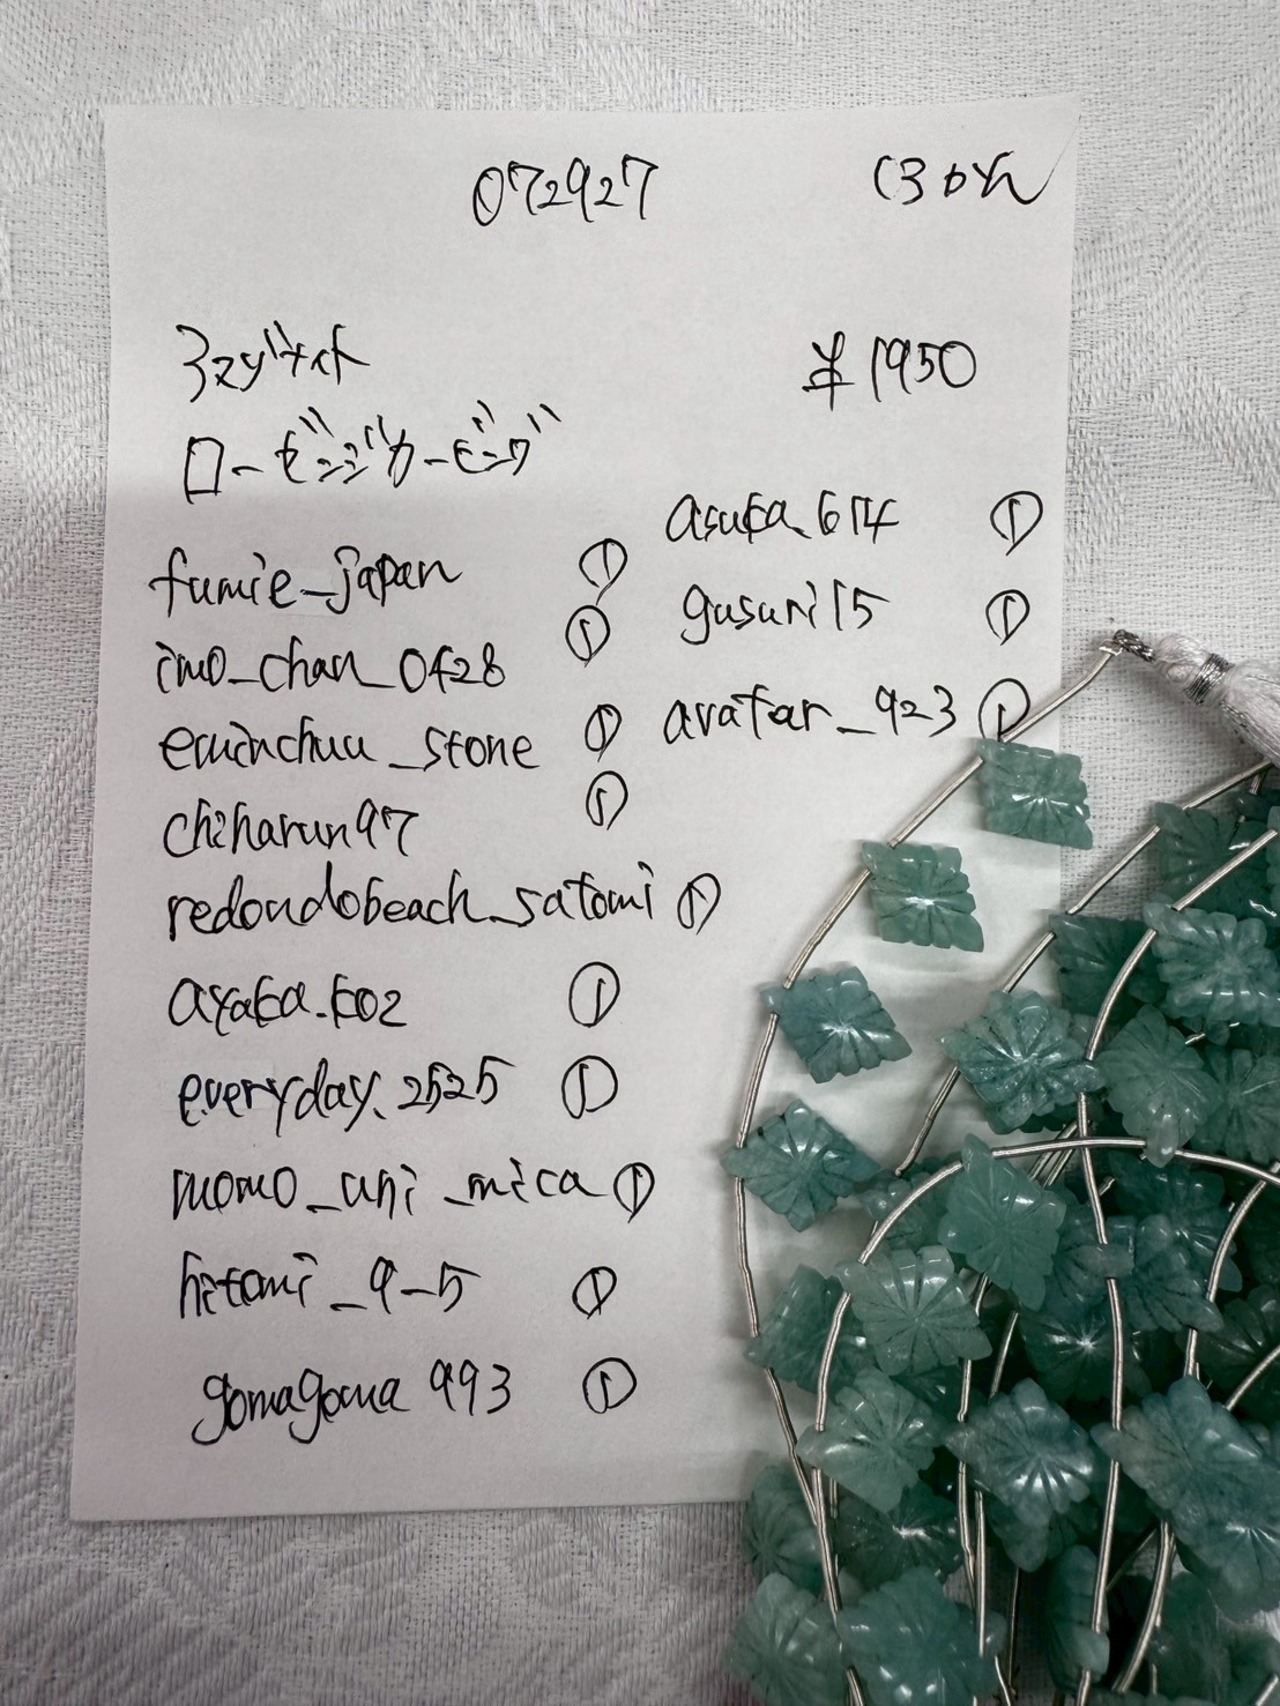 072927
(30分
アマゾナイト
¥1950
ローゼンジカービング
fumie_japan ①
imo_chan_0428 ①
eminchuu_stone ①
chiharun97 ①
redondobeach_satomi ①
ayaka.k02 ①
everyday.2525 ①
momo_uni_mica ①
hitomi_9-5 ①
gomagoma993 ①
asuka.614 ①
gusuri15 ①
avatar_923 ①